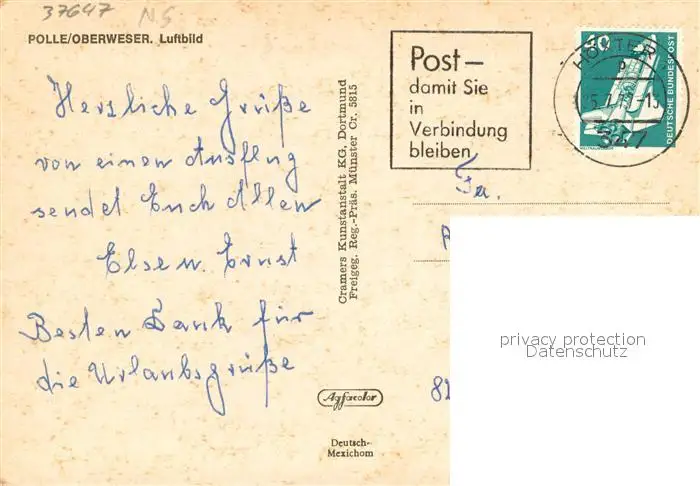 37647 N.S
POLLE/OBERWESER. Luftbild
Herzliche Grüße
von einem Ausflug
sendet Euch Allen
Else u. Ernst
Besten Dank für
die Urlaubsgrüße
Cramers Kunstanstalt KG, Dortmund
Freigeg. Reg.-Präs. Münster Cr. 5815
Agfacolor
Deutsch-
Mexichom
Post–
damit Sie
in
Verbindung
bleiben
40
DEUTSCHE BUNDESPOST
HÖXTER
Fa.
privacy protection
Datenschutz